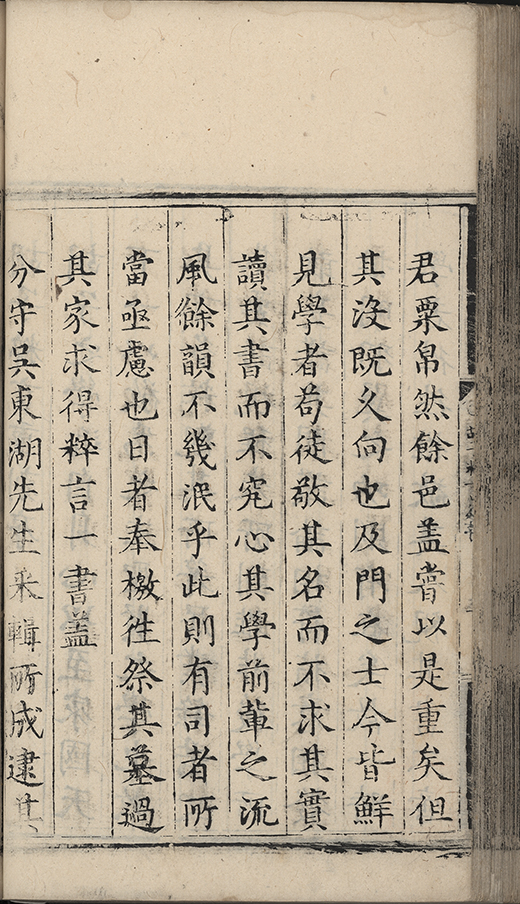 君粟帛然餘邑盖嘗以是重矣但
其沒既久向也及門之士今皆鮮
見學者苟徒敬其名而不求其實
讀其書而不究心其學前輩之流
風餘韻不幾泯乎此則有司者所
當亟慮也日者奉檄徃祭其墓過
其家求得粹言一書盖
分守吳東湖先生采輯所成逮其